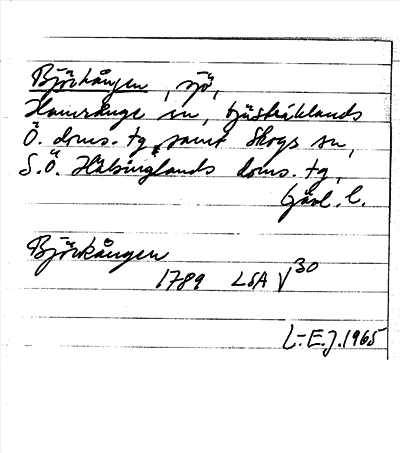 Björkången, sjö,
Hamrånge sn, Gästriklands
Ö. doms. tg, samt Skogs sn,
S.Ö. Hälsinglands doms. tg,
Gävl. l.
Björkången
1789 LSA V 30
L-E.J. 1965